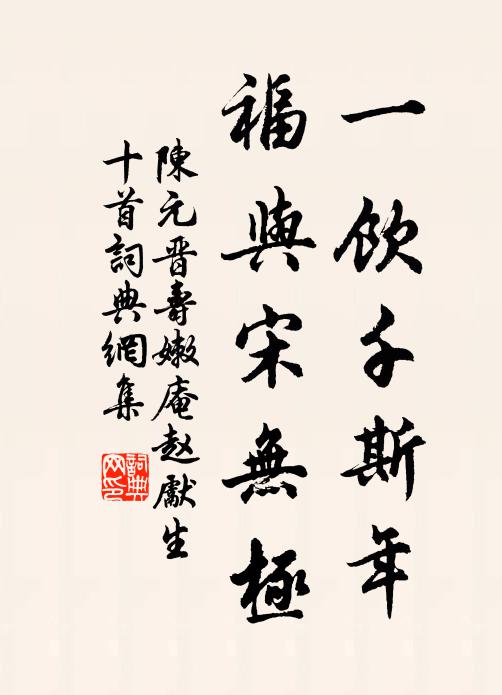 一飲千斯年
福與宋無極
陳元晋壽嫩庵赵獻生
十首詞典網集
詞典
网印